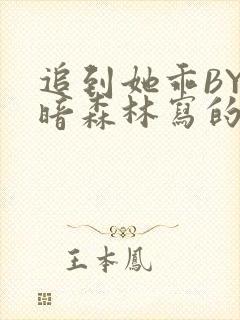 追到她乖BY
暗森林寫的
王本鳳